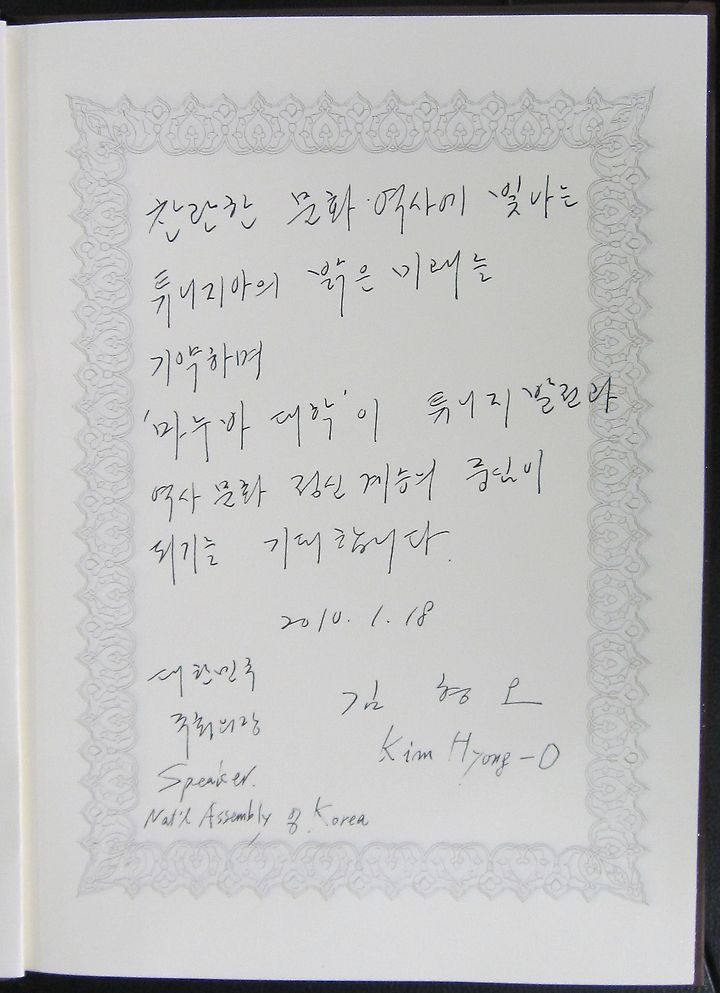 찬란한 문화·역사에 빛나는
튀니지아의 밝은 미래를
기약하며
'마누바 대학'이 튀니지 발전과
역사 문화 정신 계승의 중심이
되기를 기대합니다.
2010. 1. 18
대한민국
국회의장
김 형 오
Kim Hyong-O
Speaker.
Nat'l Assembly of Korea